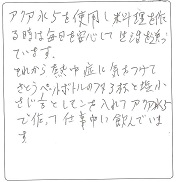 アクア水5を使用し米料理を作
る時は毎日を安心して生活を送っ
ています。
それから熱中症に気をつけて
さとうペットボトルのフタ3杯と塩小
さじ1/2としてンチ入れてアクア水5
で作って仕事中に飲んでいま
す